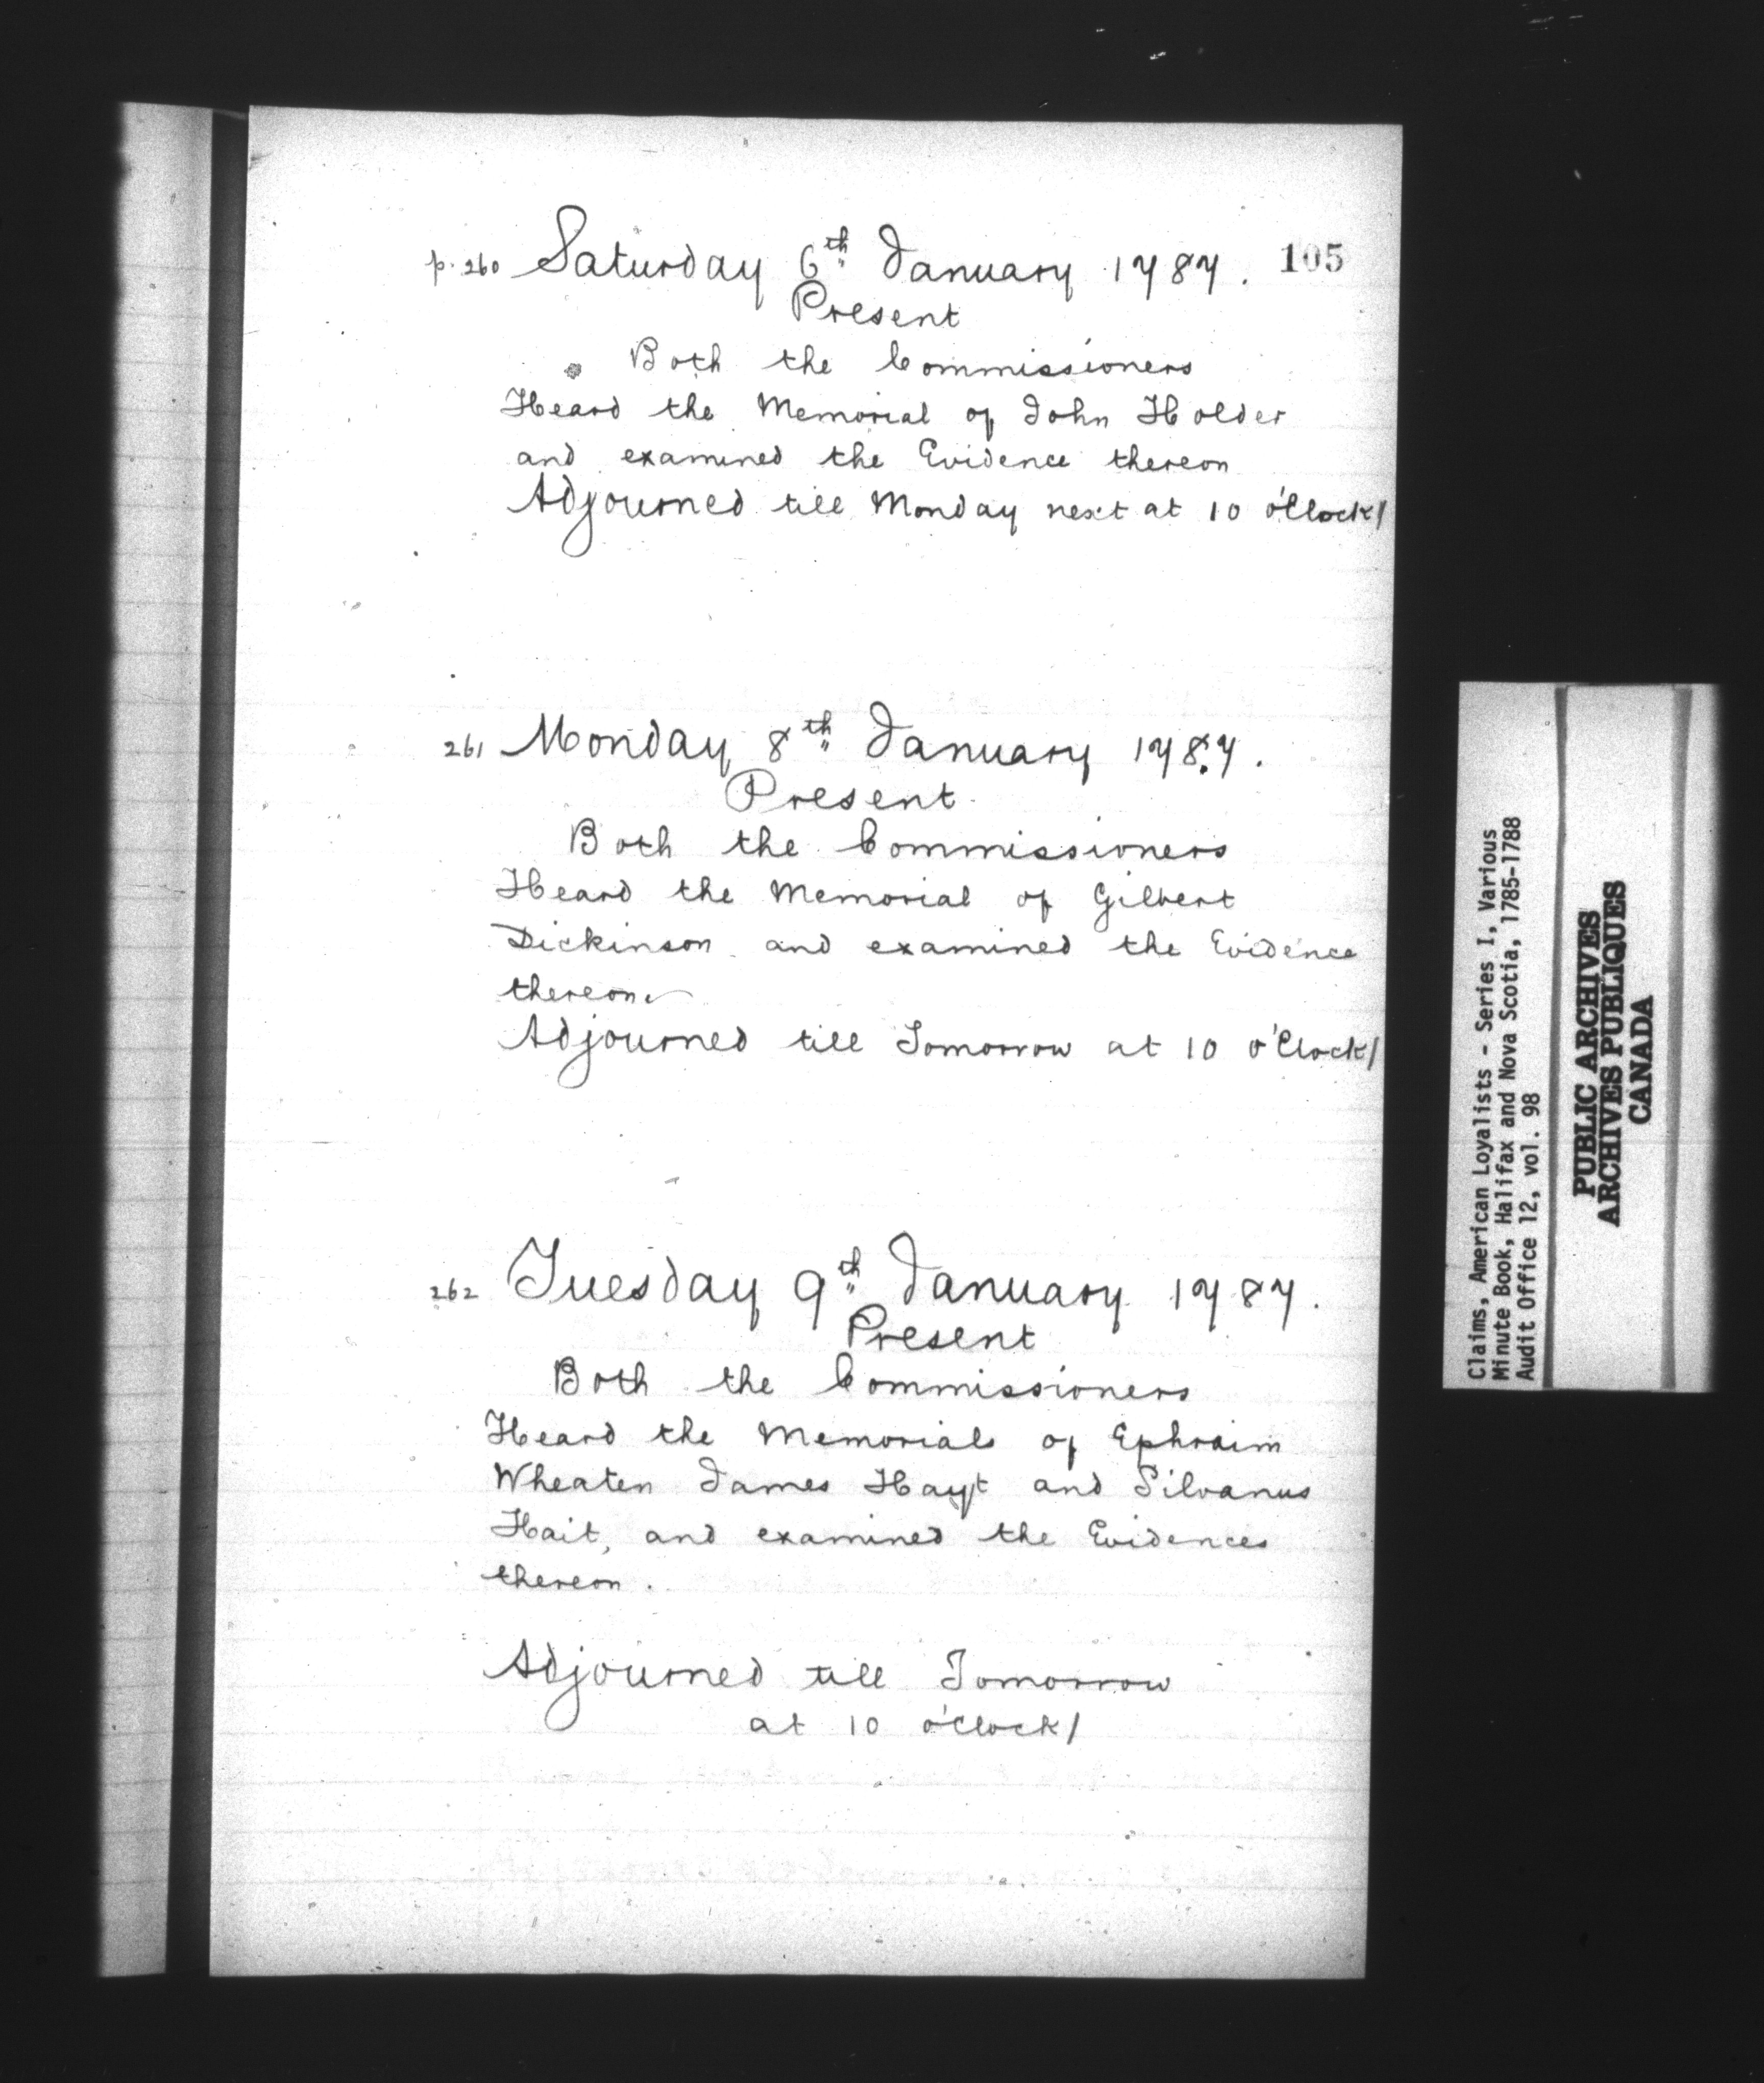 p. 260 Saturday 6th January 1787. 105
Present
Both the Commissioners
Heard the Memorial of John Holder
and examined the Evidence thereon
Adjourned till Monday next at 10 o'Clock/
261 Monday 8th January 1787.
Present
Both the Commissioners
Heard the Memorial of Gilbert
Dickinson and examined the Evidence
thereon
Adjourned till Tomorrow at 10 o'Clock/
262 Tuesday 9th January 1787.
Present
Both the Commissioners
Heard the Memorials of Ephraim
Wheaten James Hayt and Silvanus
Hait, and examined the Evidences
thereon.
Adjourned till Tomorrow
at 10 o'Clock/
Claims, American Loyalists - Series I, Various
Minute Book, Halifax and Nova Scotia, 1785-1788
Audit Office 12, vol. 98
PUBLIC ARCHIVES
ARCHIVES PUBLIQUES
CANADA